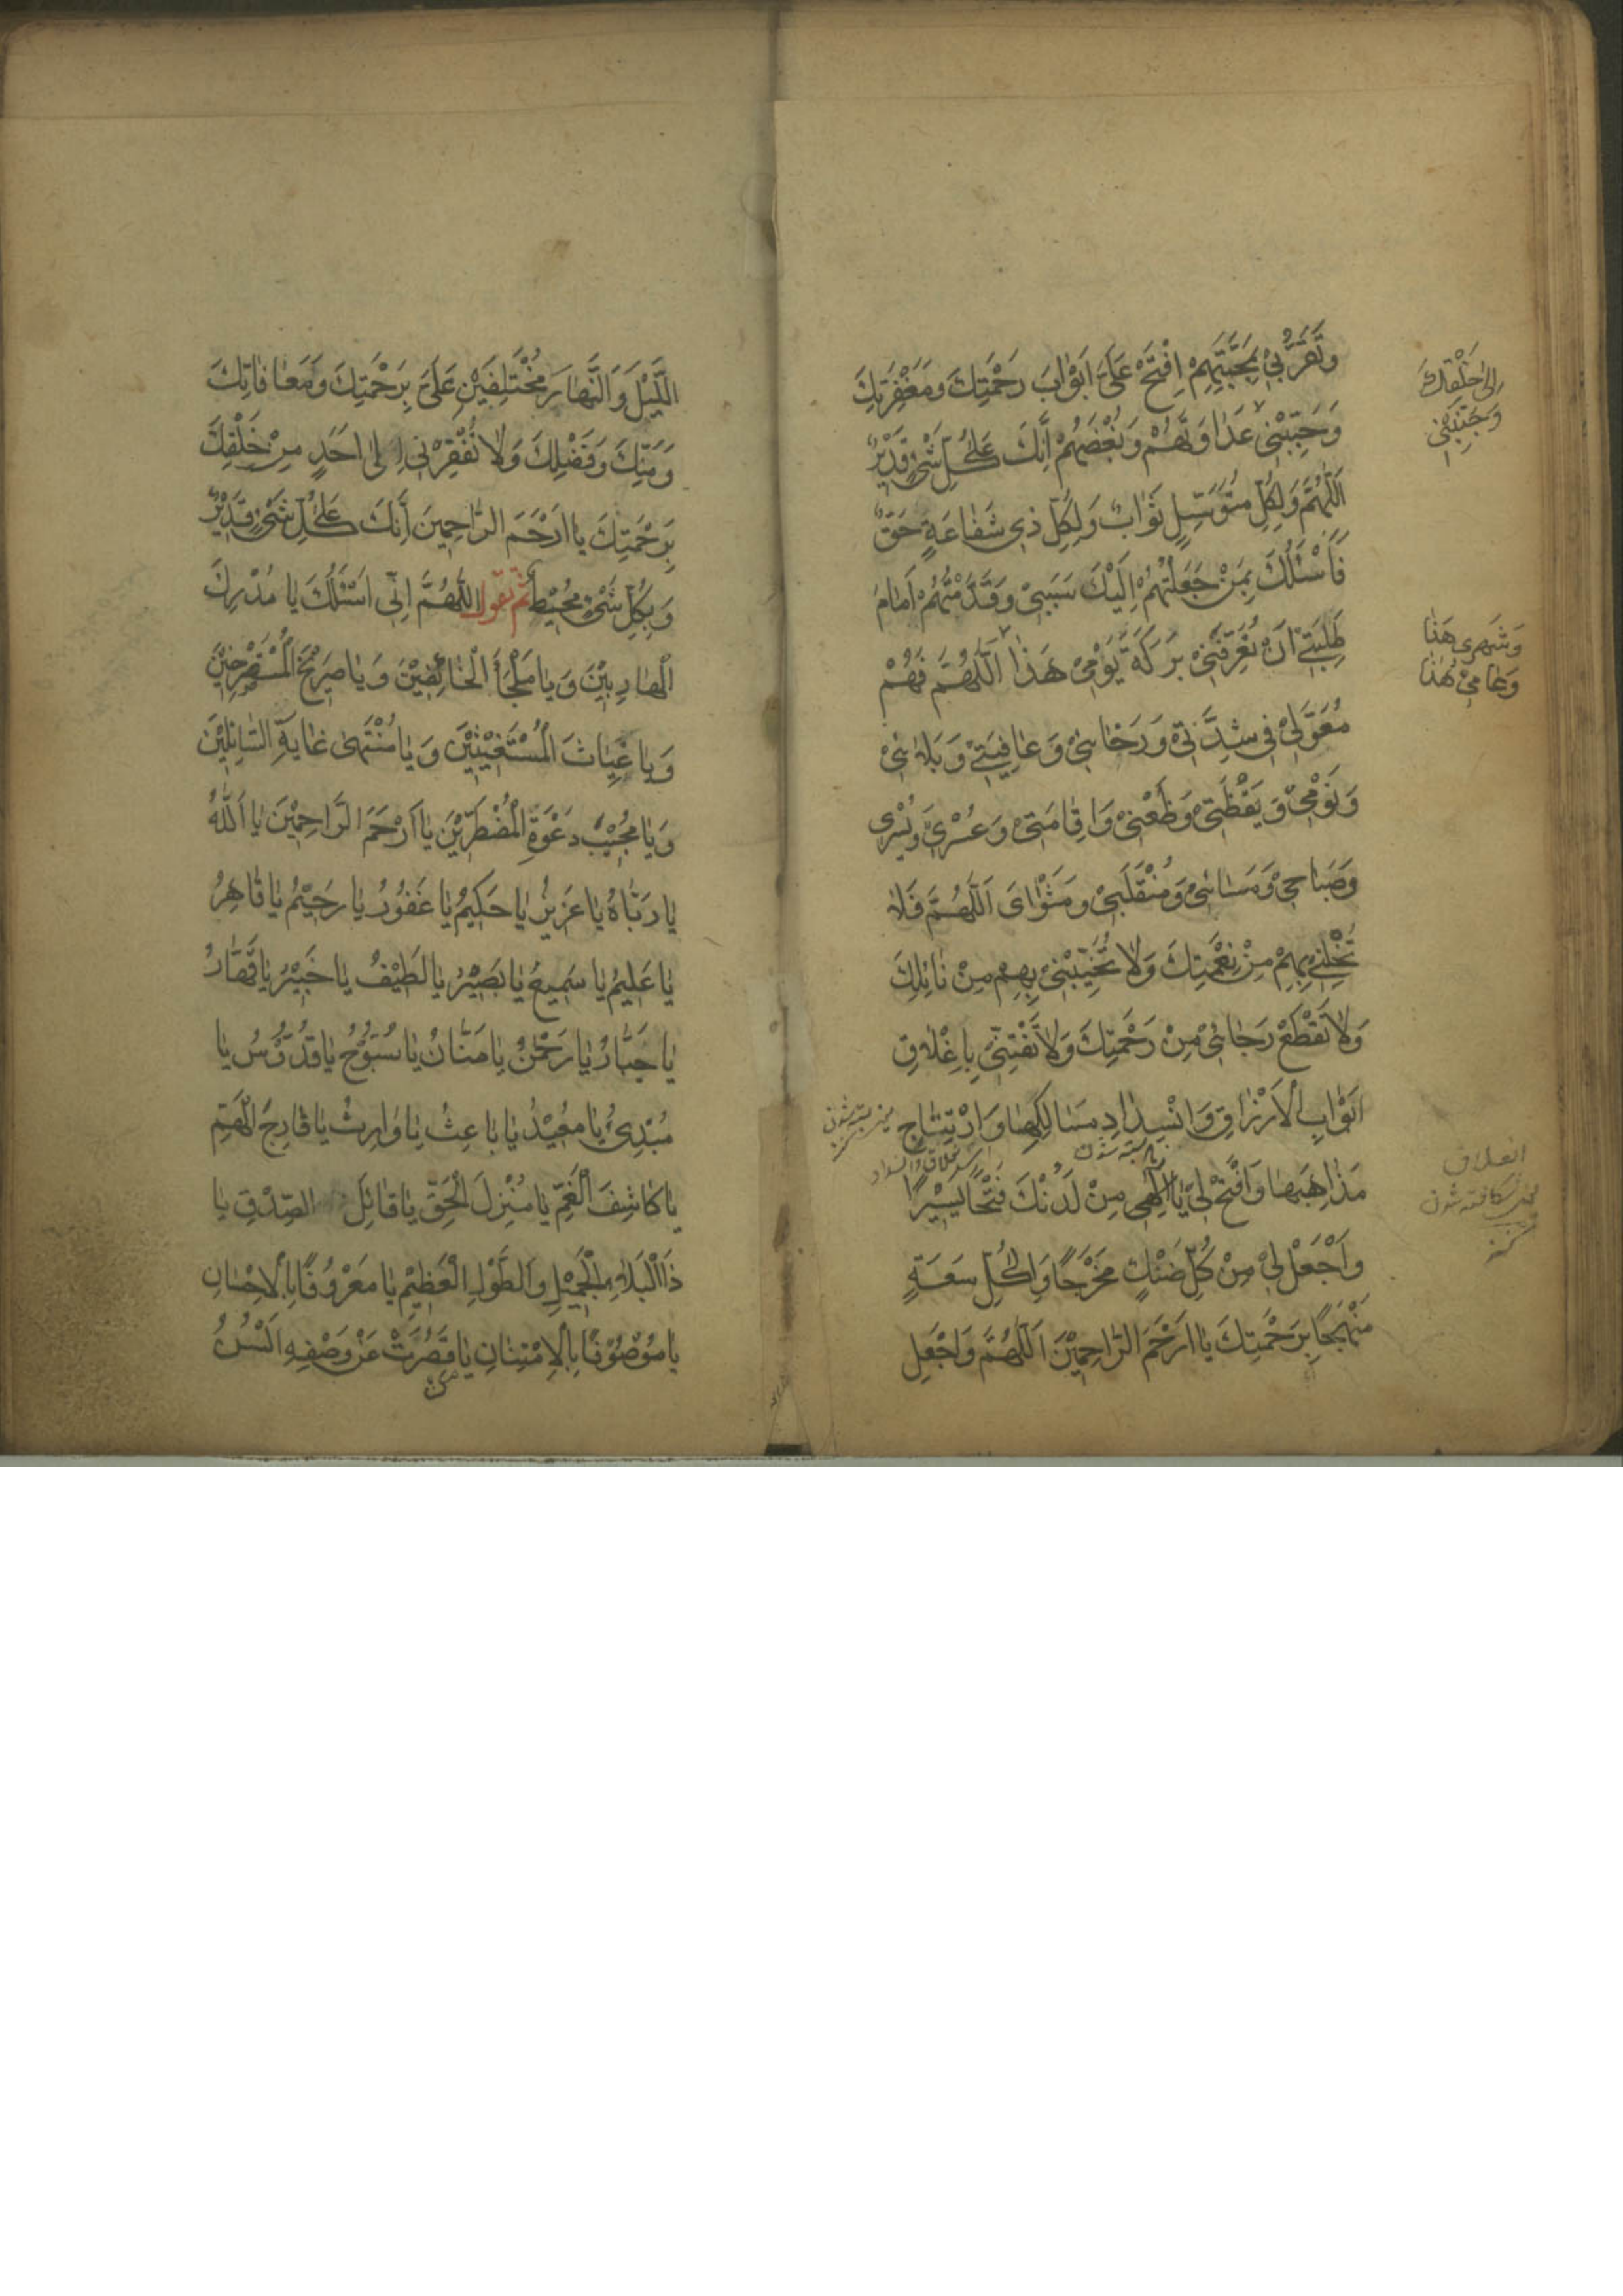 وَتَقَرُّبِيْ بِمَحَبَّتِهِمْ اِفْتَحْ عَلَيَّ اَبْوٰابَ رَحْمَتِكَ وَمَغْفِرَتِكَ
اِلىٰ خَلْقِكَ
وَحَبِّبْنِيْ
وَجَنِّبْنِيْ عَدٰاوَتَهُمْ وَبُغْضَهُمْ اِنَّكَ عَلىٰ كُلِّ شَيْءٍ قَدِيْرٌ
اَللّٰهُمَّ وَلِكُلِّ مُتَوَسِّلٍ ثَوٰابٌ وَلِكُلِّ ذِي شَفٰاعَةٍ حَقٌّ
فَأَسْئَلُكَ بِمَنْ جَعَلْتَهُمْ اِلَيْكَ سَبَبِيْ وَقَدَّمْتَهُمْ اَمٰامَ
طَلِبَتِيْ اَنْ تُعَرِّفَنِيْ بَرَكَةَ يَوْمِيْ هَذٰا اَللّٰهُمَّ فَهُمْ
وَشَهرِي هَذٰا
وَعٰامِيْ هٰذٰا
مُعَوَّلِيْ فِي شِدَّتِيْ وَرَخٰائِيْ وَعٰافِيَتِيْ وَبَلٰائِيْ
وَنَوْمِيْ وَيَقْظَتِيْ وَظَعْنِيْ وَاِقٰامَتِيْ وَعُسْرِيْ وَيُسْرِي
وَصَبٰاحِيْ وَمَسٰائِيْ وَمُنْقَلَبِيْ وَمَثْوٰايَ اَللّٰهُمَّ فَلٰا
تُخْلِنِيْ بِهِمْ مِنْ نِعْمَتِكَ وَلٰا تُخَيِّبْنِيْ بِهِمْ مِنْ نٰائِلِكَ
وَلٰا تَقْطَعْ رَجٰائِيْ مِنْ رَحْمَتِكَ وَلٰا تَفْتِنِّيْ بِاِغْلٰاقِ
اَبْوٰابِ الْاَرْزٰاقِ وَانْسِدٰادِ مَسٰالِكِهٰا وَارْتِتٰاجِ
مَذٰاهِبِهٰا وَافْتَحْ لِيْ يٰا اِلٰهِي مِنْ لَدُنْكَ فَتْحًا يَسِيْرًا
انغلاق
وَاَجْعَلْ لِيْ مِنْ كُلِّ ضَنْكٍ مَخْرَجًا وَاِلىٰ كُلِّ سَعَةٍ
مَنْهَجًا بِرَحْمَتِكَ يٰا اَرْحَمَ الرّٰاحِمِيْنَ اَللّٰهُمَّ وَاجْعَلِ
اللَّيْلَ وَالنَّهٰارَ مُخْتَلِفَيْنِ عَلَيَّ بِرَحْمَتِكَ وَمَعٰافٰاتِكَ
وَمَنِّكَ وَفَضْلِكَ وَلٰا تُفْقِرْنِي اِلىٰ اَحَدٍ مِنْ خَلْقِكَ
بِرَحْمَتِكَ يٰا اَرْحَمَ الرّٰاحِمِينَ اِنَّكَ عَلىٰ كُلِّ شَيْءٍ قَدِيْرٌ
وَبِكُلِّ شَيْءٍ مُحِيْطٌ ثم تقول اَللّٰهُمَّ اِنِّي اَسْئَلُكَ يٰا مُدْرِكَ
الْهٰارِبِيْنَ وَيٰا مَلْجَأَ الْخٰائِفِيْنَ وَيٰا صَرِيْخَ الْمُسْتَصْرِخِيْنَ
وَيٰا غِيٰاثَ الْمُسْتَغِيْثِيْنَ وَيٰا مُنْتَهىٰ غٰايَةِ السّٰائِلِيْنَ
وَيٰا مُجِيْبَ دَعْوَةِ الْمُضْطَرِّيْنَ يٰا اَرْحَمَ الرَّاحِمِيْنَ يٰا اَللّٰهُ
يٰا رَبّٰاهُ يٰا عَزِيزُ يٰا حَكِيْمُ يٰا غَفُوْرُ يٰا رَحِيْمُ يٰا قٰاهِرُ
يٰا عَلِيْمُ يٰا سَمِيعُ يٰا بَصِيْرُ يٰا لَطِيْفُ يٰا خَبِيْرُ يٰا قَهّٰارُ
يٰا جَبّٰارُ يٰا رَحْمٰنُ يٰا مَنّٰانُ يٰا سُبُّوْحُ يٰا قُدُّوْسُ يٰا
مُبْدِئُ يٰا مُعِيْدُ يٰا بٰاعِثُ يٰا وٰارِثُ يٰا فٰارِجَ الْهَمِّ
يٰا كٰاشِفَ الْغَمِّ يٰا مُنْزِلَ الْحَقِّ يٰا قٰائِلَ الصِّدْقِ يٰا
ذَا الْبَلٰاءِ الْجَمِيْلِ وَالطَّوْلِ الْعَظِيْمِ يٰا مَعْرُوْفًا بِالْاِحْسٰانِ
يٰا مَوْصُوْفًا بِالْاِمْتِنٰانِ يٰا مَنْ قَصُرَتْ عَنْ وَصْفِهِ اَلْسُنُ